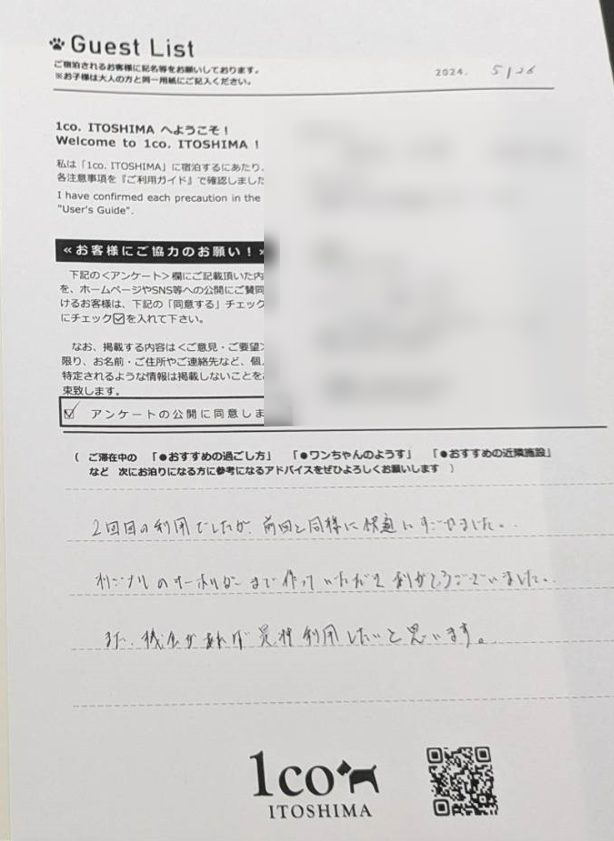 Guest List
ご宿泊されるお客様に記名等をお願いしております。
※お子様は大人の方と同一用紙にご記入ください。
2024. 5/26
1co. ITOSHIMA へようこそ！
Welcome to 1co. ITOSHIMA !
私は「1co. ITOSHIMA」に宿泊するにあたり、
各注意事項を『ご利用ガイド』で確認しました
I have confirmed each precaution in the
"User's Guide".
≪お客様にご協力のお願い！
下記の＜アンケート＞欄にご記載頂いた内
を、ホームページやSNS等への公開にご賛同
けるお客様は、下記の「同意する」チェック
にチェック☑を入れて下さい。
なお、掲載する内容は＜ご意見・ご要望＞
限り、お名前・ご住所やご連絡先など、個
特定されるような情報は掲載しないことを
束致します。
☑ アンケートの公開に同意しま
（ ご滞在中の 「●おすすめの過ごし方」 「●ワンちゃんのようす」 「●おすすめの近隣施設」
など 次にお泊りになる方に参考になるアドバイスをぜひよろしくお願いします ）
2回目の利用でしたが、前回と同様に快適にすごせました。
オリジナルのキーホルダーまで作っていただきありがとうございました。
また、機会があれば是非利用したいと思います。
1co
ITOSHIMA